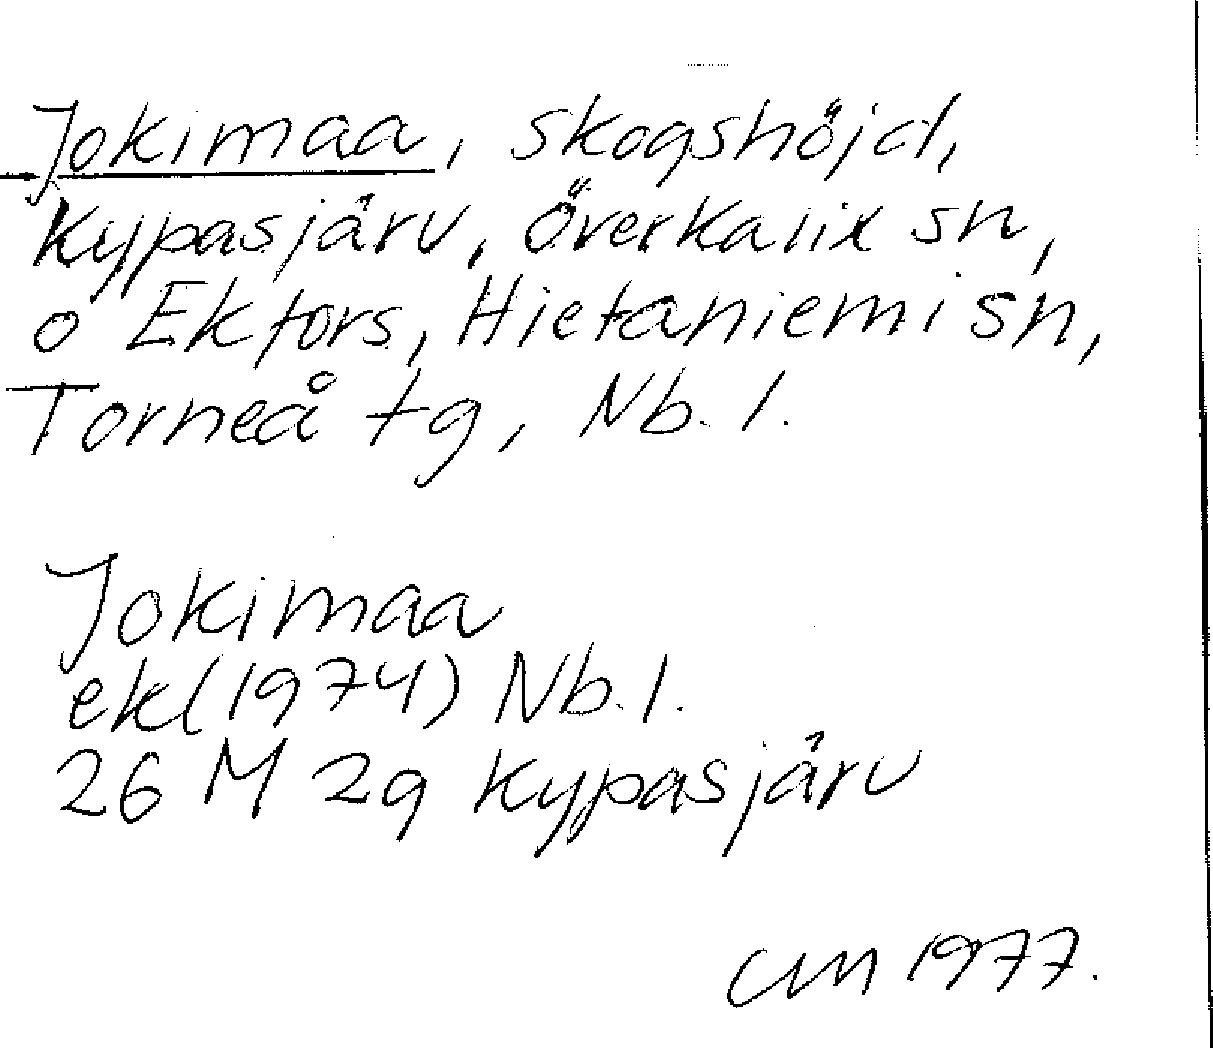 Jokimaa, skogshöjd,
Kypasjärv, Överkalix sn,
o Ektors, Hietaniemi sn,
Torneå tg, Nb. l.
Jokimaa
ek(1974) Nb. l.
26 M 2g Kypasjärv
CM 1977.